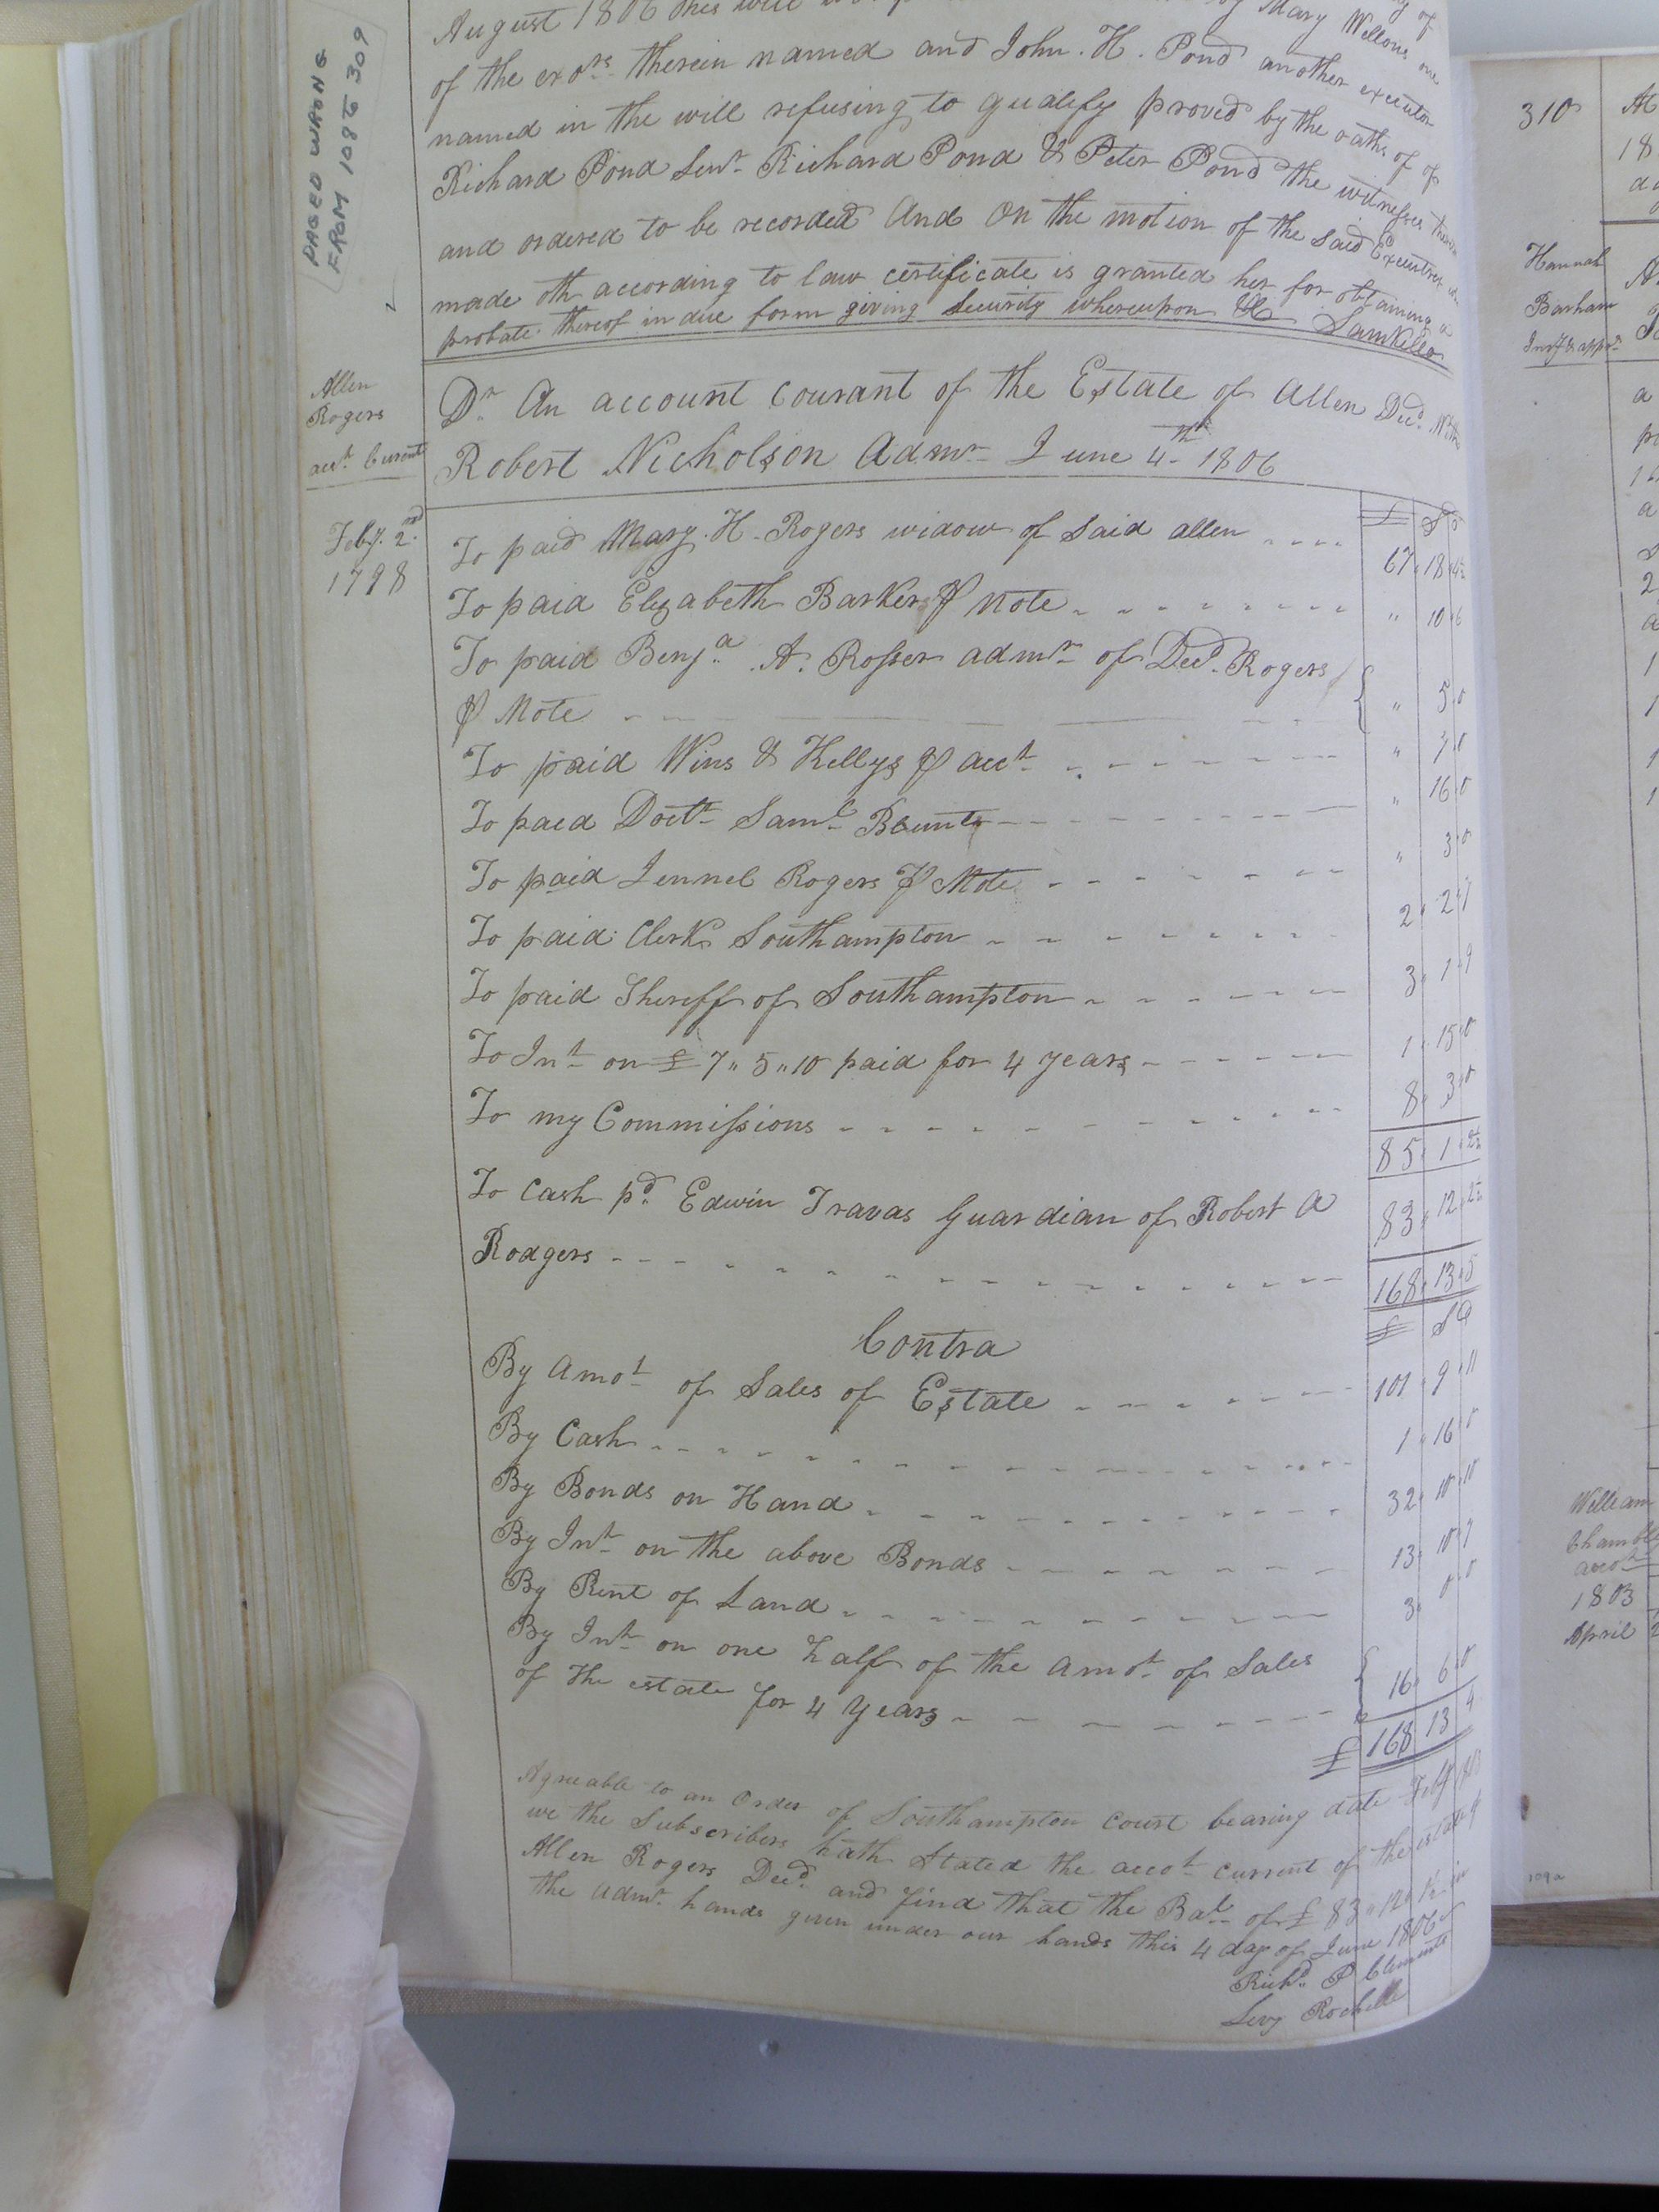 PAGED WRONG
FROM 108 TO 309
August 1806 This will
of the exors. therein named and John. H. Pond another executor
named in the will refusing to qualify proved by the oaths of of
Richard Pond Senr. Richard Pond & Peter Pond the witnesses
and ordered to be recorded And on the motion of the said Executrix
made oth according to law certificate is granted her for obtaining a
probate thereof in due form giving security whereupon &c Saml Kello
Allen
Rogers
acct. Current
Dr. An account Courant of the Estate of Allen Decd.
Robert Nicholson Admr. June 4th 1806
£ S D
Feby. 2nd
1798
To paid Mary. H. Rogers widow of said allen 67 18 4½
To paid Elizabeth Barker ⅌ note " 10 6
To paid Benja. A. Rosser admr. of Decd. Rogers
⅌ Note " 5 0
To paid Wins & Kellys ⅌ acct. "
To paid Doctr. Saml. " 16 0
To paid Lemuel Rogers ⅌ Note " 3 0
To paid Clerk Southampton 2 2 7
To paid Sheriff of Southampton 3 1 9
To Int. on £ 7 " 5 " 10 paid for 4 years 1 15 0
To my Commissions 8 3 0
85 1 2½
To Cash pd. Edwin Travas Guardian of Robert A 83 12 2½
Rodgers
168 13 5
Contra £ S D
By Amot. of Sales of Estate 101 9 11
By Cash 1 16 0
By Bonds on Hand 32 10 10
By Int. on the above Bonds 13 10 7
By Rent of Land 3 0 0
By Int. on one half of the Amot. of Sales
of the estate for 4 Years 16 6 0
£ 168 13 4
Agreable to an Order of Southampton Court bearing date Feby
we the Subscribers hath Stated the accot. current of the estate of
Allen Rogers Decd. and find that the Bal. of £ 83 " 12 "
the admr. hands given under our hands this 4 day of June 1806
Richd. P Clements
Levy Rochelle
310
18
Hannah
Barham
Invy & appr.
William
1803
April
109a